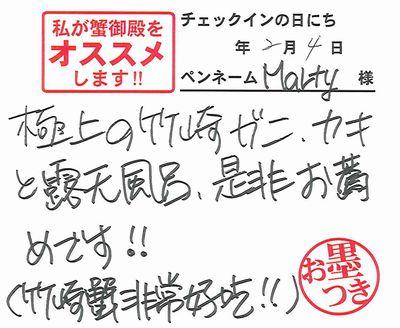 私が蟹御殿を
オススメ
します!!
チェックインの日にち
年2月4日
ペンネーム Marty 様
極上の竹崎ガニ、カキ
と露天風呂、是非お薦
めです!!
(竹崎蟹非常好吃!!)
お墨つき